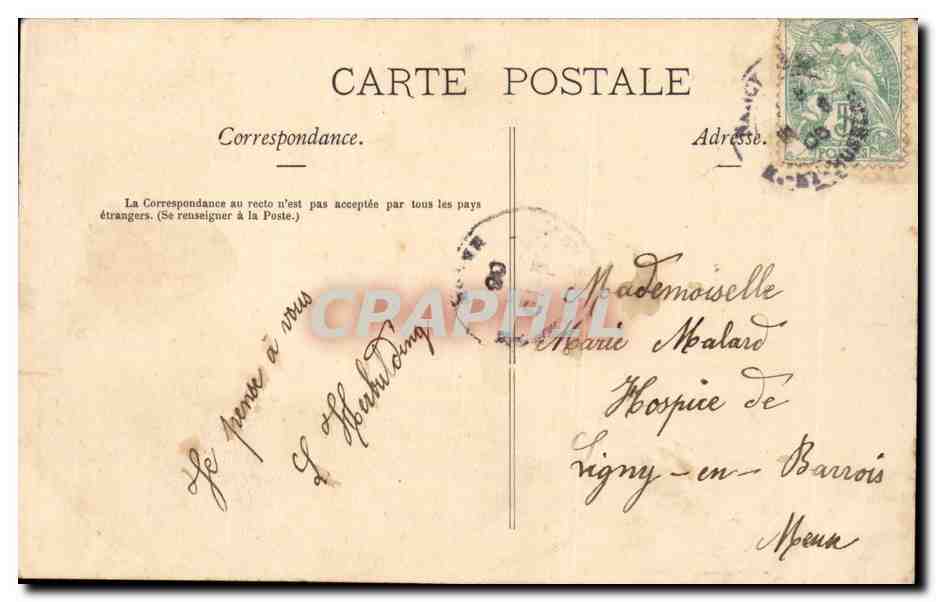 CARTE POSTALE
Correspondance.
Adresse.
La Correspondance au recto n'est pas acceptée par tous les pays
étrangers. (Se renseigner à la Poste.)
Je pense à vous
L Herbulding
Mademoiselle
Marie Malard
Hospice de
Ligny-en-Barrois
Meuse
CPAPHIL
NANCY
5